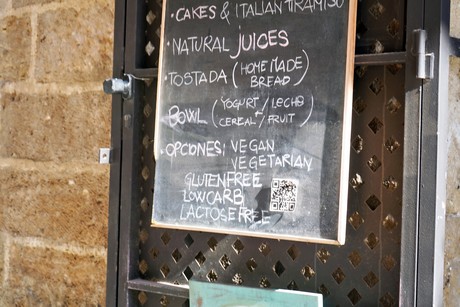 • CAKES & ITALIAN TIRAMISU
• NATURAL JUICES
• TOSTADA (HOME MADE
BREAD)
BOWL (YOGURT/LECHE
CEREAL/FRUIT)
• OPCIONES: VEGAN
VEGETARIAN
GLUTENFREE
LOWCARB
LACTOSEFREE